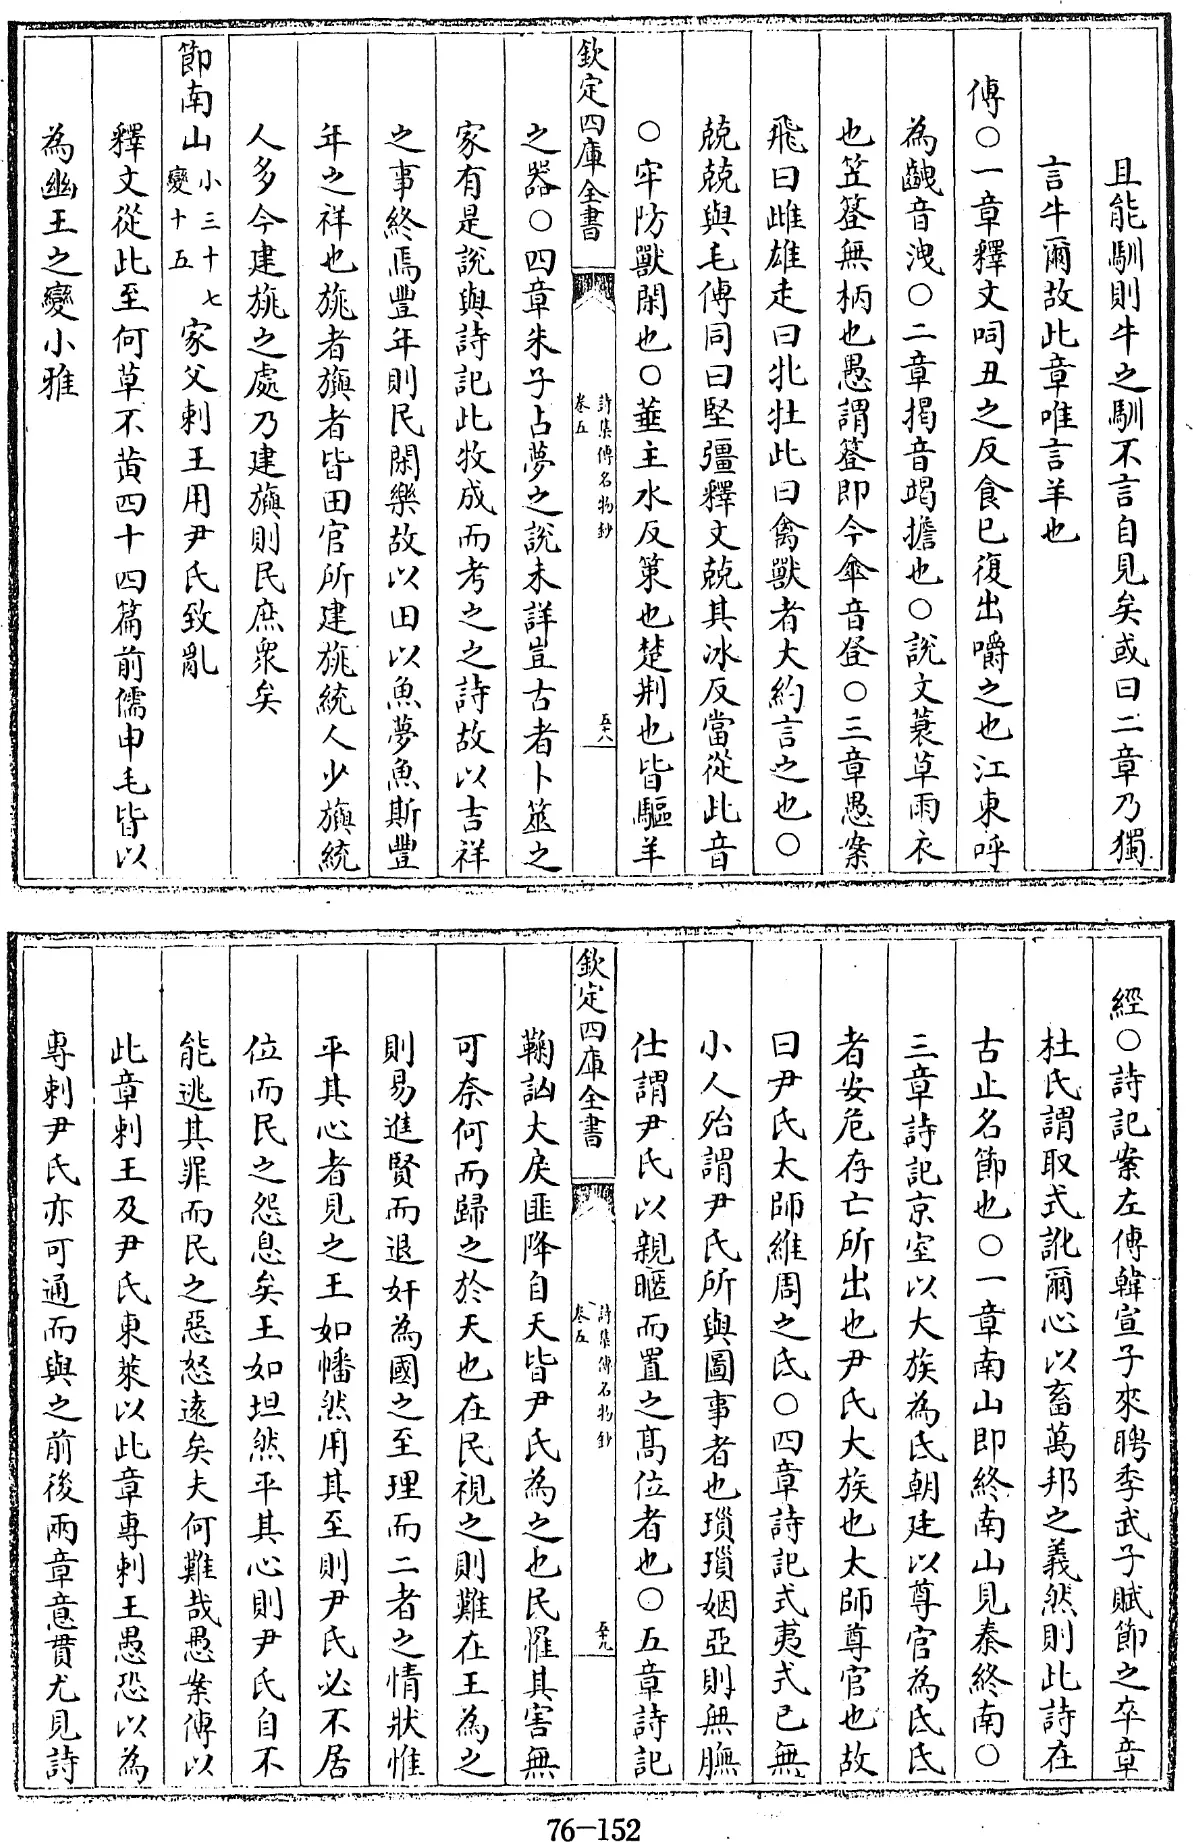 且能馴則牛之馴不言自見矣或曰二章乃獨
言牛爾故此章唯言羊也
傳○一章釋文呞丑之反食已復出嚼之也江東呼
為齥音洩○二章揭音竭擔也○說文蓑草雨衣
也笠簦無柄也愚謂簦即今傘音登○三章愚案
飛曰雌雄走曰牝牡此曰禽獸者大約言之也○
兢兢與毛傳同曰堅彊釋文兢其冰反當從此音
○牢防獸閑也○菙主水反策也楚荆也皆驅羊
欽定四庫全書
詩集傳名物鈔
卷五
五十八
之器○四章朱子占夢之說未詳豈古者卜筮之
家有是說與詩記此牧成而考之之詩故以吉祥
之事終焉豐年則民閑樂故以田以魚夢魚斯豐
年之祥也旐者旟者皆田官所建旐統人少旟統
人多今建旐之處乃建旟則民庶衆矣
節南山小三十七變十五 家父刺王用尹氏致亂
釋文從此至何草不黄四十四篇前儒申毛皆以
為幽王之變小雅
經○詩記案左傳韓宣子來聘季武子賦節之卒章
杜氏謂取式訛爾心以畜萬邦之義然則此詩在
古止名節也○一章南山即終南山見秦終南○
三章詩記京室以大族為氐朝廷以尊官為氐氐
者安危存亡所出也尹氏大族也太師尊官也故
曰尹氏太師維周之氐○四章詩記式夷式已無
小人殆謂尹氏所與圖事者也瑣瑣姻亞則無膴
仕謂尹氏以親暱而置之髙位者也○五章詩記
欽定四庫全書
詩集傳名物鈔
卷五
五十九
鞠訩大戾匪降自天皆尹氏為之也民惟其害無
可奈何而歸之於天也在民視之則難在王為之
則易進賢而退奸為國之至理而二者之情狀惟
平其心者見之王如幡然用其至則尹氏必不居
位而民之怨息矣王如坦然平其心則尹氏自不
能逃其罪而民之惡怒遠矣夫何難哉愚案傳以
此章刺王及尹氏東萊以此章專刺王愚恐以為
專刺尹氏亦可通而與之前後兩章意貫尤見詩
76-152